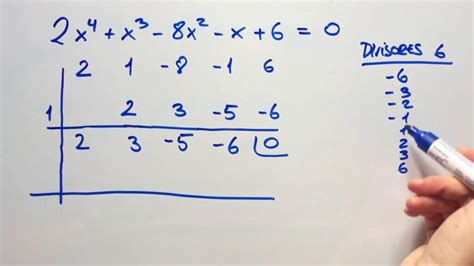 2x⁴ + x³ - 8x² - x + 6 = 0
2 1 -8 -1 6
1 2 3 -5 -6
2 3 -5 -6 0
DIVISORES 6
-6
-3
-2
-1
1
2
3
6